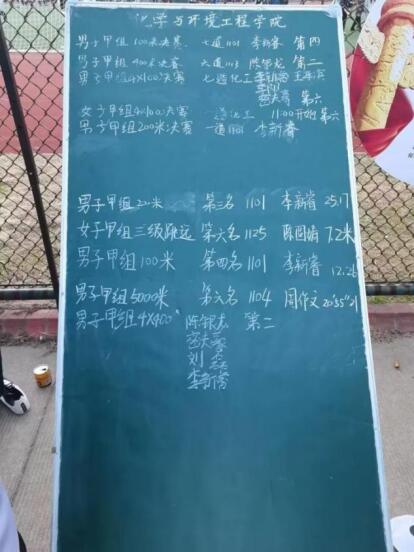 化学与环境工程学院
男子甲组 100米决赛 七道 1101 李新睿 第四
男子甲组 400米决赛 六道 1113 陈银龙 第二
男子甲组 4×100决赛 七道 化工 李新睿
第六
女子甲组 4×100决赛 一道 化工 11:00开始 第六
男子甲组 200米决赛 一道 1101 李新睿
男子甲组 200米 第三名 1101 李新睿 25.17
女子甲组 三级跳远 第六名 1125 7.2米
男子甲组 100米 第四名 1101 李新睿 12.2
男子甲组 5000米 第六名 1104 周作文 20'55"21
男子甲组 4×400 陈银龙 第二
刘磊
李新睿